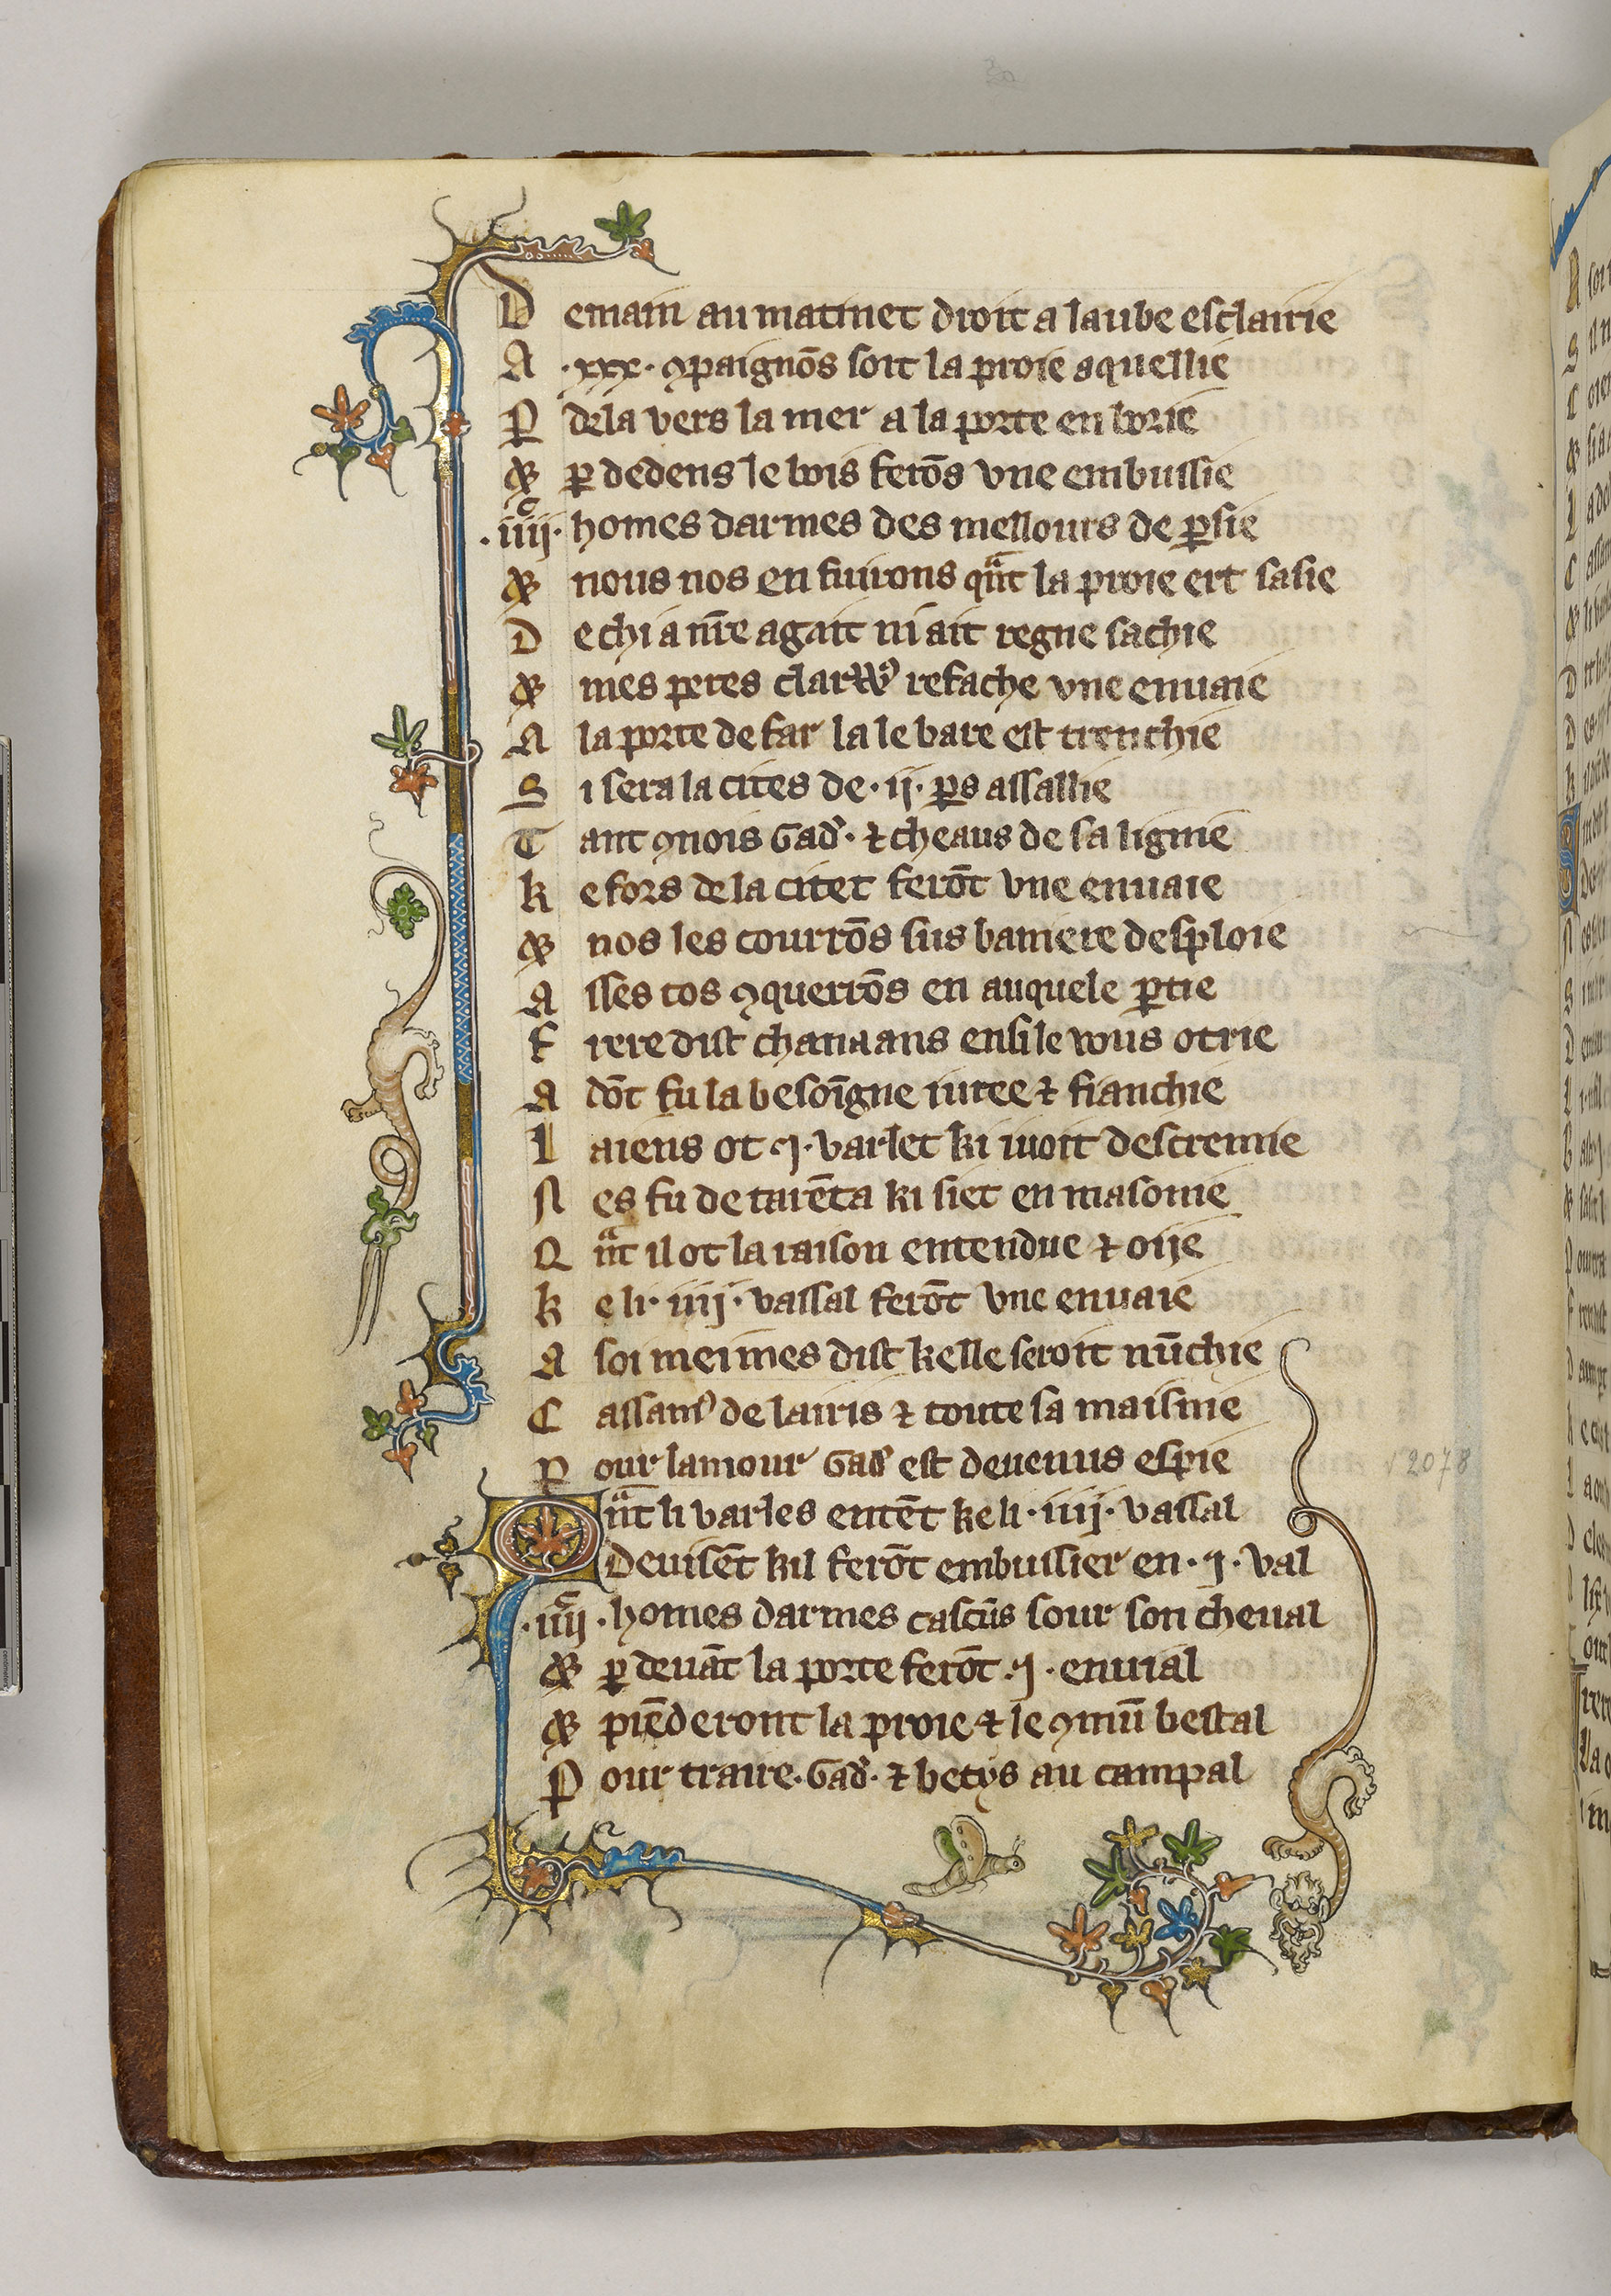 Demain au matinet droit a laube esclairie
A .xxx. ꝯpaignōs soit la proie aquellie
P dela vers la mer a la porte en lorie
⁊ ꝑ dedens le bois ferōs vne embussie
.iiijͨ. homes darmes des mellours de ꝑsie
⁊ nous nos en fuirons qᵃ̄t la proie ert saisie
De chi a nr̄e agait ni ait regne sachie
⁊ mes peres clarꝰ refache vne enuaie
A la porte de far la le bare est trenchie
Si sera la cites de .ij. ꝑs assallie
Tant ꝯnois Gadꝰ. ⁊ cheaus de sa lignie
ke fors de la citet ferōt vne enuaie
⁊ nos les courrōs sus baniere desploie
Asses tos ꝯquerrōs en auquele ꝑtie
Frere dist chanaans ensi le vous otrie
Adōt fu la besoīgne iuree ⁊ fianchie
Laiens ot .j. varlet ki iuoit descremie
Nes fu de tarēta ki siet en masonie
Qᵃ̄nt il ot la raison entendue ⁊ oije
ke li .iiij. vassal ferōt vne enuaie
A soi meimes dist kelle seroit nūchie
Cassamꝰ de lairis ⁊ toute sa maisnie
Pour lamour Gadꝰ est deuenus espie
Qᵃ̄nt li varles entēt ke li .iiij. vassal
Deuisēt kil ferōt embussier en .j. val
.iiijͨ. homes darmes cascūs sour son cheual
⁊ ꝑ deuāt la porte ferōt .j. enuial
⁊ prēderont la proie ⁊ le ꝯmū bestal
Pour traire .Gadꝰ. ⁊ betys au campal
v 2078